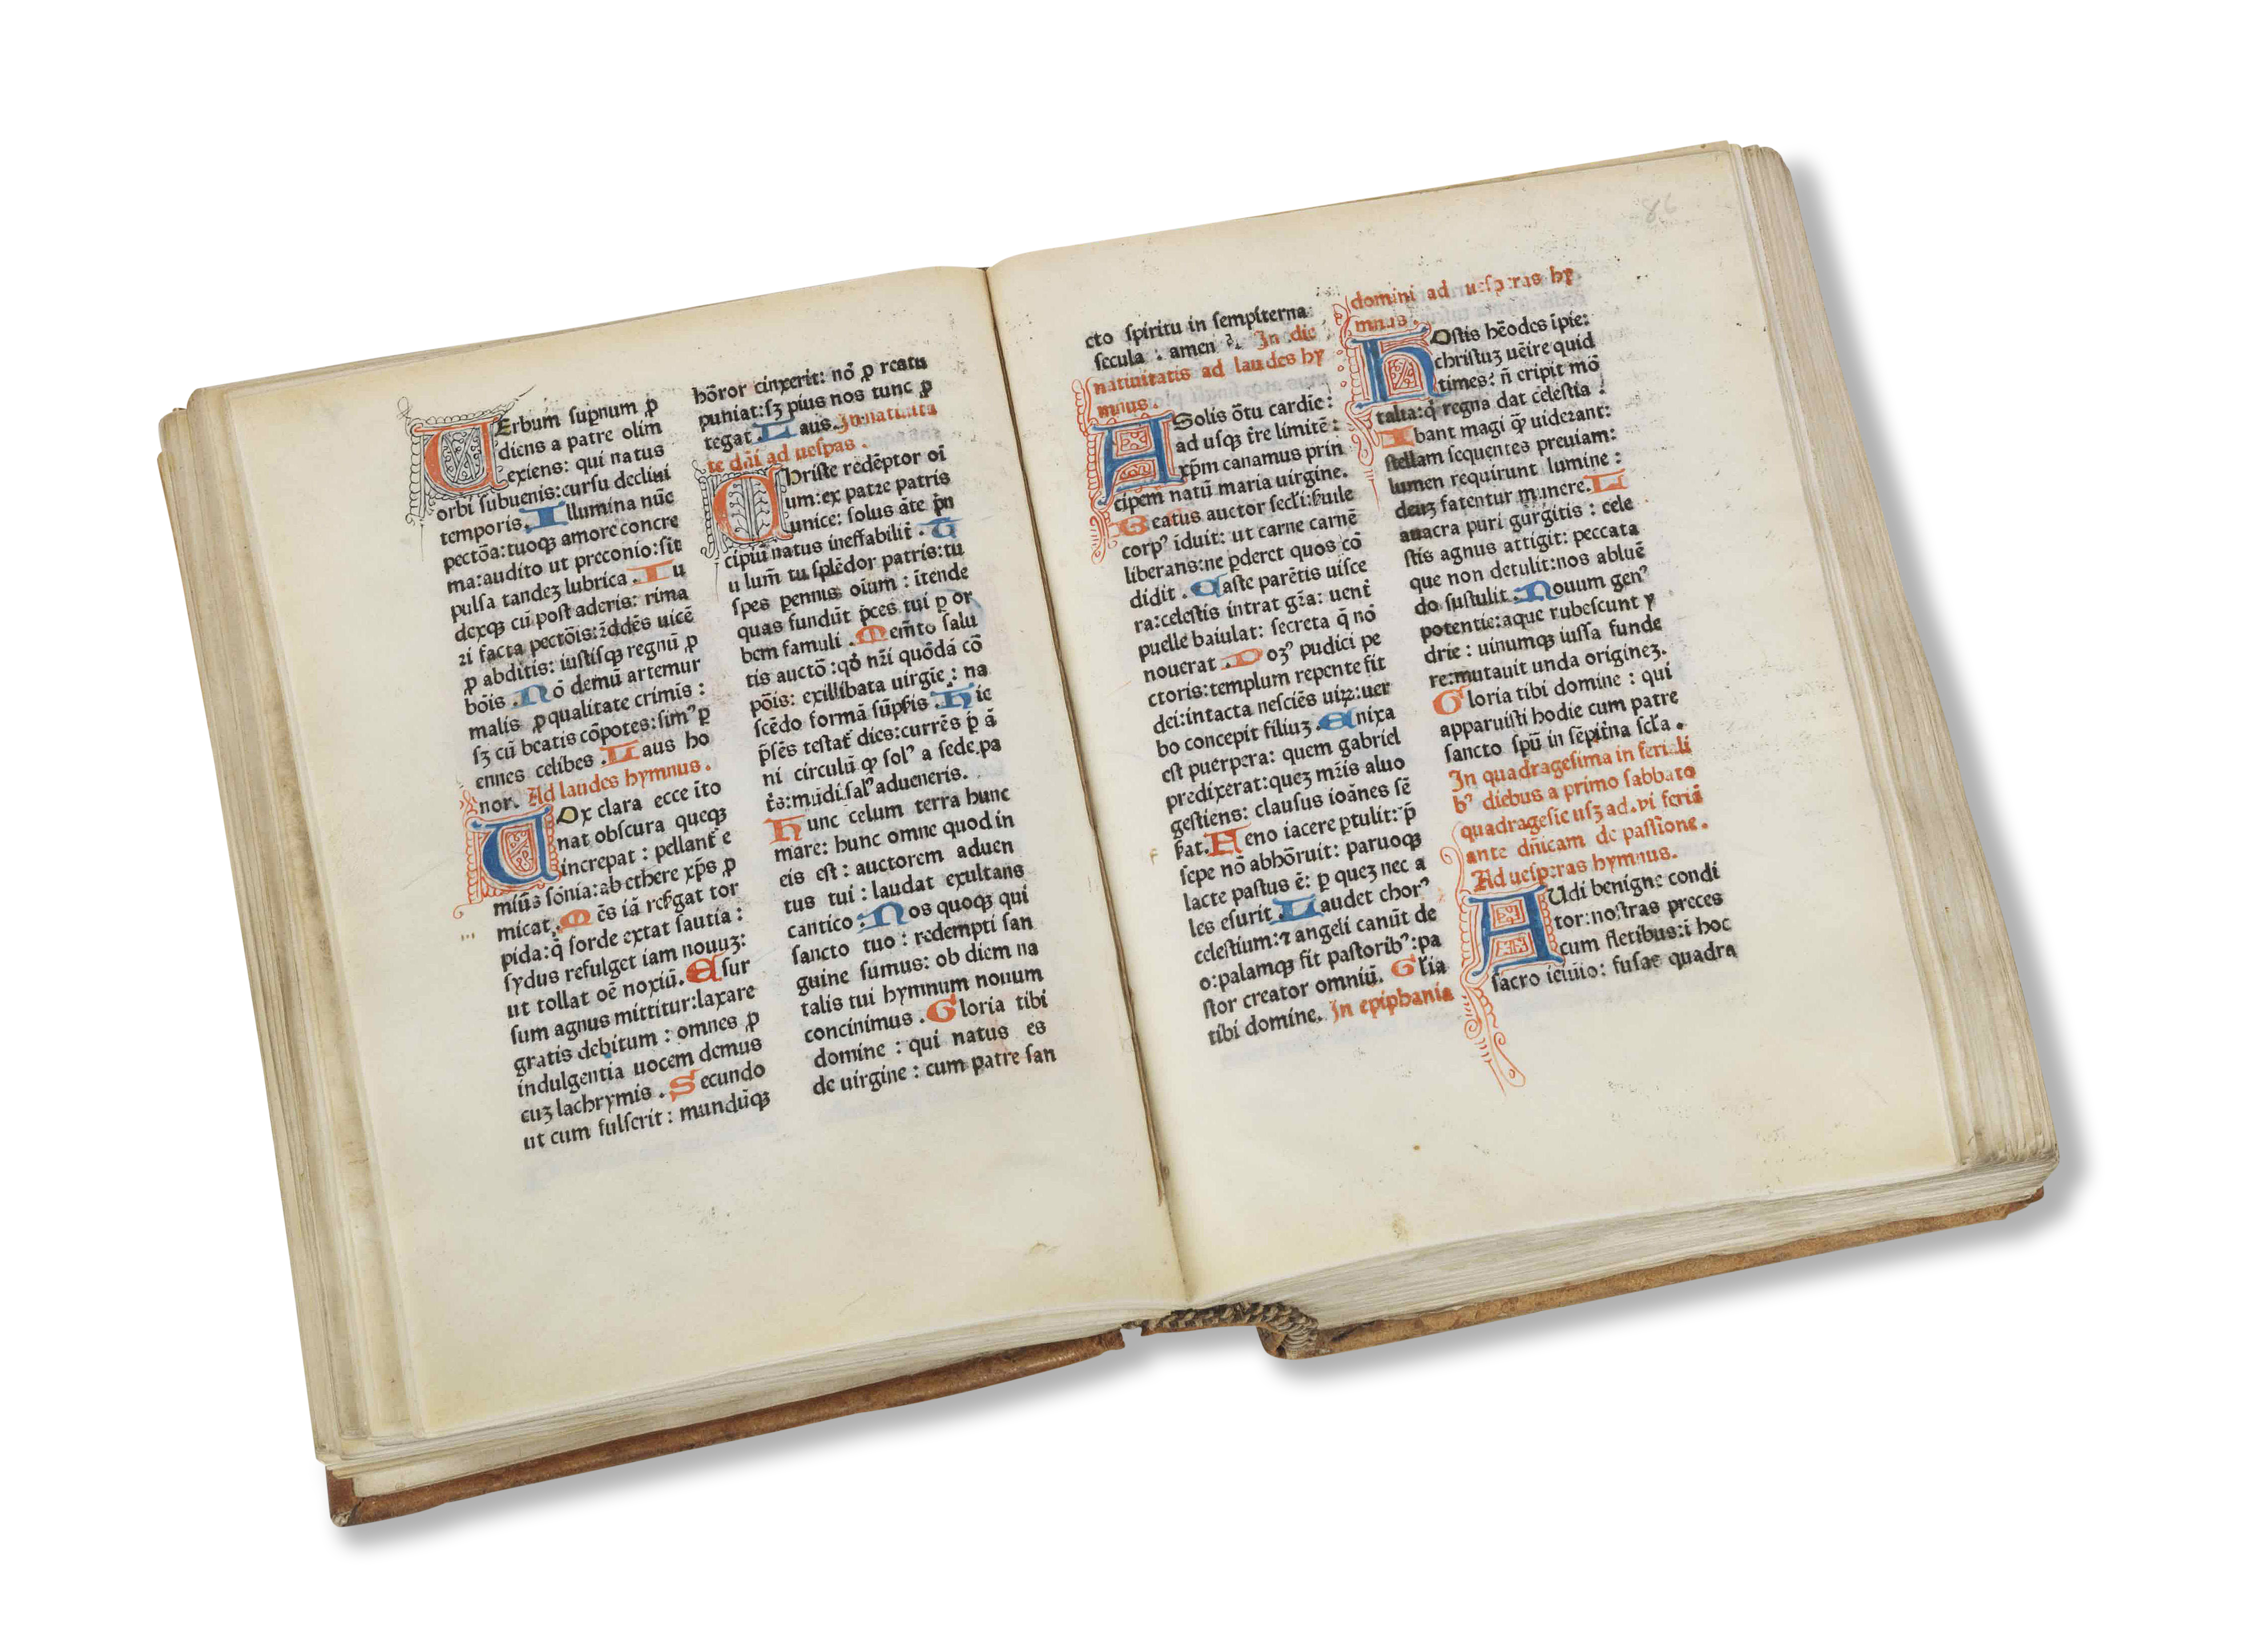 UErbum suꝑnum ꝓ
diens a patre olim
exiens: qui natus
orbi subuenis: cursu decliui
temporis. Illumina nūc
pectōa: tuoqꝫ amore concre
ma: audito ut preconio: sīt
pulsa tandeꝫ lubrica. Iu
dexqꝫ cū post aderis: rima
ri facta pectōis: r̄ddēs uicē
ꝓ abditis: iustisqꝫ regnū ꝓ
bōis. Nō demū artemur
malis ꝓ qualitate crimīs:
sꝫ cū beatis cōpotes: simꝰ ꝑ
ennes celibes. Laus ho
nor. Ad laudes hymnus.
UOx clara ecce īto
nat obscura queqꝫ
increpat: pellant̄ e
minꝰ sōnia: ab ethere xp̄s ꝓ
micat. Mēs iā resgat tor
pida: q̄ sorde extat sautia:
sydus refulget iam nouuꝫ:
ut tollat oē noxiū. Esur
sum agnus mittitur: laxare
gratis debitum: omnes ꝓ
indulgentia uocem demus
cuꝫ lachrymis. Secundo
ut cum fulserit: mundūqꝫ
hōror cinxerit: nō ꝓ reatu
puniat: sꝫ pius nos tunc ꝓ
tegat. Laus. In natiuita
te dn̄i ad uesꝑas.
CHriste redēptor oī
um: ex patre patris
unice: solus āte p̄n
cipiū natus ineffabilit̄. T
u lum̄ tu splēdor patris: tu
spes ꝑennis oīum: ītende
quas fundūt p̄ces tui ꝑ or
bem famuli. Mem̄to salu
tis auctō: qꝺ nr̄i quōdā cō
pōis: ex illibata uirgīe: na
scēdo formā sūpsis. Hic
p̄sēs testat̄ dies: currēs ꝑ ā
ni circulū ꝙ solꝰ a sede pa
t̄s: mūdi salꝰ adueneris.
Hunc celum terra hunc
mare: hunc omne quod in
eis est: auctorem aduen
tus tui: laudat exultans
cantico: Nos quoqꝫ qui
sancto tuo: redempti san
guine sumus: ob diem na
talis tui hymnum nouum
concinimus. Gloria tibi
domine: qui natus es
de uirgine: cum patre san
cto spiritu in sempiterna
secula: amen. In die
natiuitatis ad laudes hy
mnus.
A Solis ōtu cardīe:
ad usqꝫ t̄re limitē:
xp̄m canamus prin
cipem natū maria uirgine.
Beatus auctor secl̄i: s̄uile
corpꝰ iduit: ut carne carnē
liberans: ne ꝑderet quos cō
didit. Caste parētis uisce
ra: celestis intrat gr̄a: uent̄
puelle baiulat: secreta q̄ nō
nouerat. Domꝰ pudici pe
ctoris: templum repente fit
dei: intacta nesciēs uiꝝ: uer
bo concepit filiuꝫ. Enixa
est puerpera: quem gabriel
predixerat: queꝫ mr̄is aluo
gestiens: clausus ioānes sē
s̄at. Feno iacere ꝑtulit: p̄
sepe nō abhōruit: paruoqꝫ
lacte pastus ē: ꝑ queꝫ nec a
les esurit. Laudet chorꝰ
celestium: ⁊ angeli canūt de
o: palamqꝫ fit pastoribꝰ: pa
stor creator omniū. Gl̄ia
tibi domine. In epiphania
domini ad uesperas hy
mnus.
HOstis hēodes īpie:
christuꝫ uēire quid
times: n̄ eripit mō
talia: q̄ regna dat celestia:
Ibant magi q̄ʒ uiderant:
stellam sequentes preuiam:
lumen requirunt lumine:
deuꝫ fatentur munere. L
auacra puri gurgitis: cele
stis agnus attigit: peccata
que non detulit: nos abluē
do sustulit. Nouum genꝰ
potentie: aque rubescunt y
drie: uinumqꝫ iussa funde
re: mutauit unda origineꝫ.
Gloria tibi domine: qui
apparuisti hodie cum patre
sancto spū in sēpit̄na scl̄a.
In quadragesima in feriali
bꝰ diebus a primo sabbato
quadragesīe usꝫ ad. vi feriā
ante dn̄icam de passione.
Ad uesperas hymnus.
AUdi benigne condi
tor: nostras preces
cum fletibus: ī hoc
sacro ieiūio: fusas quadra
86